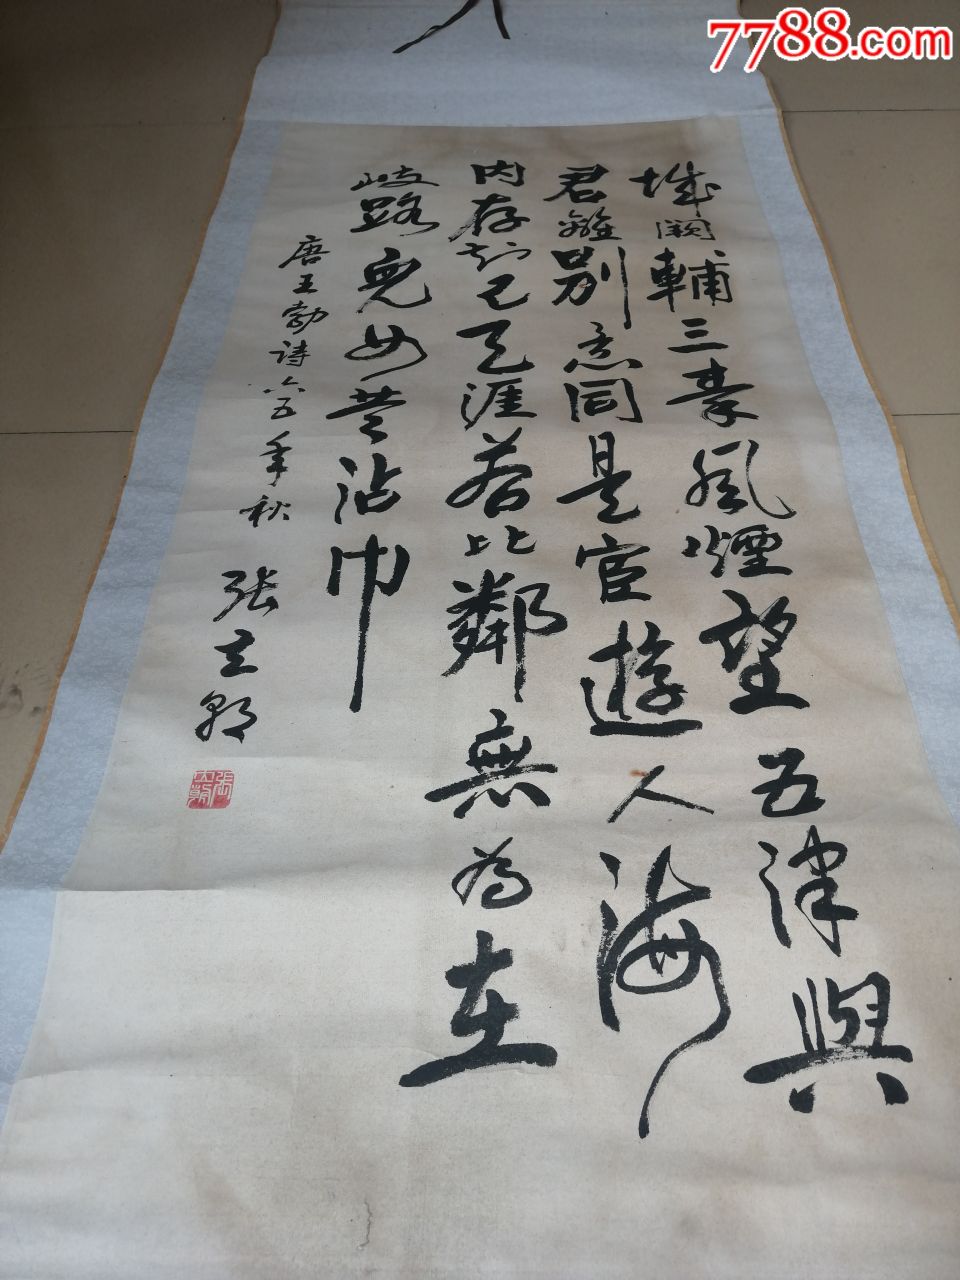 7788.com
城闕輔三秦風煙望五津與
君離別意同是宦遊人海
内存知己天涯若比鄰無為在
歧路兒女共沾巾
唐王勃詩六五年秋
張立朝